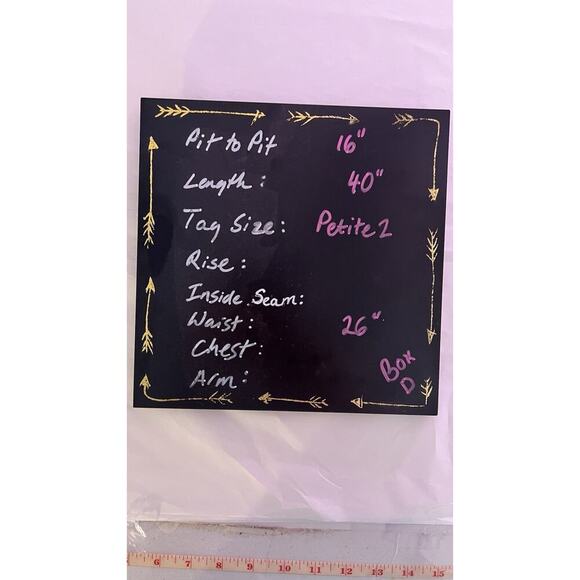 Pit to Pit 16"
Length: 40"
Tag Size: Petite 2
Rise:
Inside Seam:
Waist: 26"
Chest:
Box
Arm: D
6 7 8 9 10 11 12 13 14 15